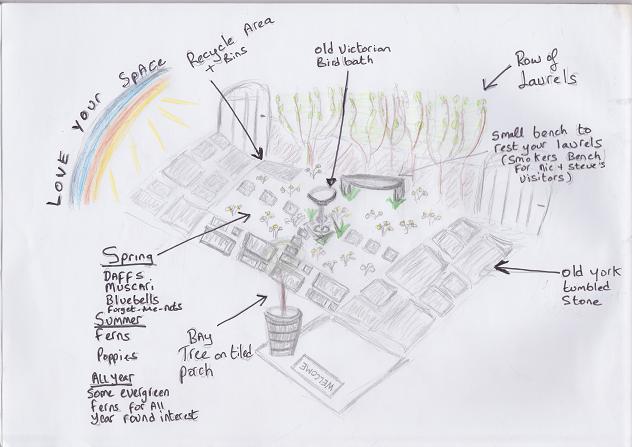 LOVE YOUR SPACE
Recycle Area
+ Bins
old Victorian
Birdbath
Row of
Laurels
Small bench to
rest your laurels
(Smokers Bench
for Nic + Steve's
Visitors)
Spring
DAFFS
MUSCARI
Bluebells
Forget-Me-nots
Summer
Ferns
Poppies
All year
Some evergreen
Ferns for All
Year round interest
BAY
Tree on tiled
porch
WELCOME
old york
tumbled
Stone